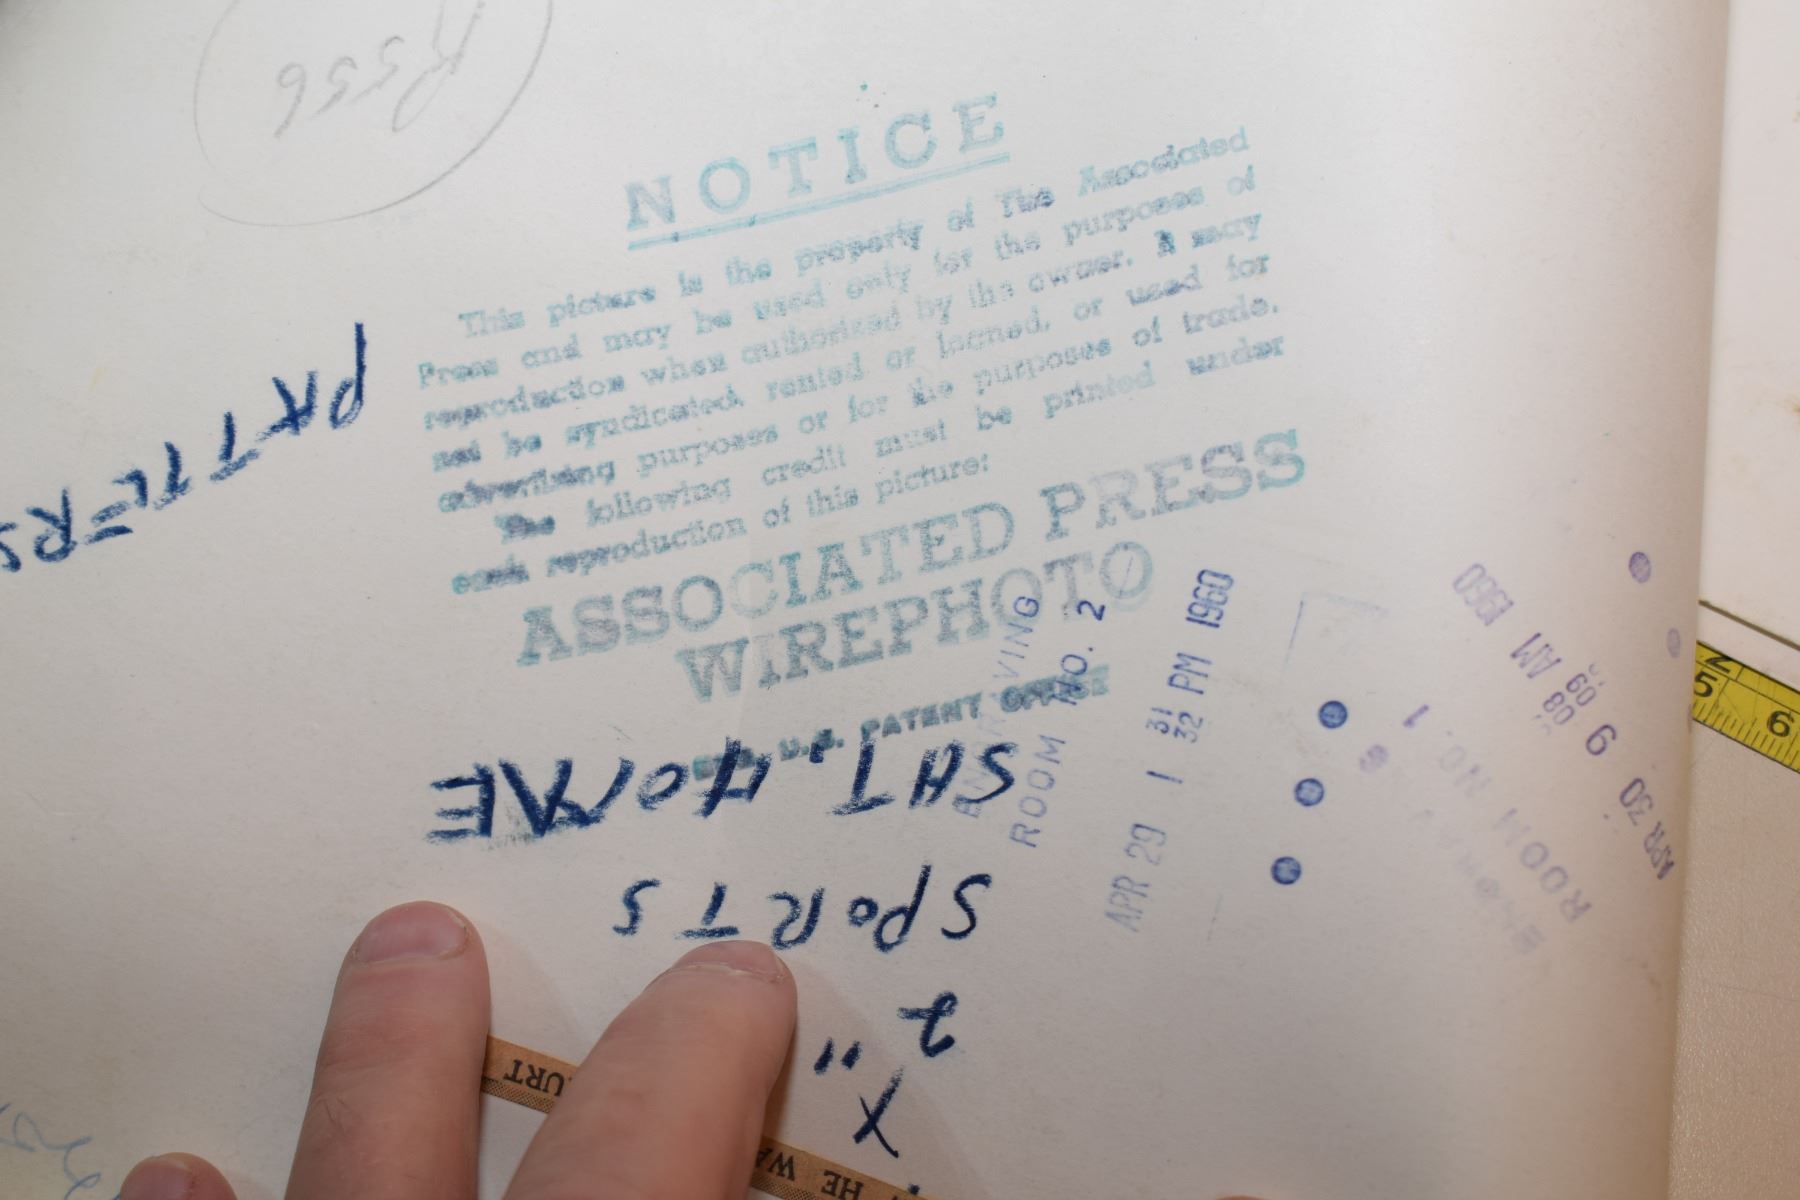 R556
NOTICE
This picture is the property of The Associated
Press and may be used only for the purposes of
reproduction when authorized by the owner. It may
not be syndicated, rented or loaned, or used for
advertising purposes or for the purposes of trade.
The following credit must be printed under
each reproduction of this picture:
ASSOCIATED PRESS
WIREPHOTO
REG. U.S. PATENT OFFICE
PATTERS
SAT.
SPORTS
2"
X
ROOM NO. 2
APR 29 1 31 32 PM 1960
ROOM NO. 1
APR 30 9 08 09 AM 1960
HE WA
URT
5
6